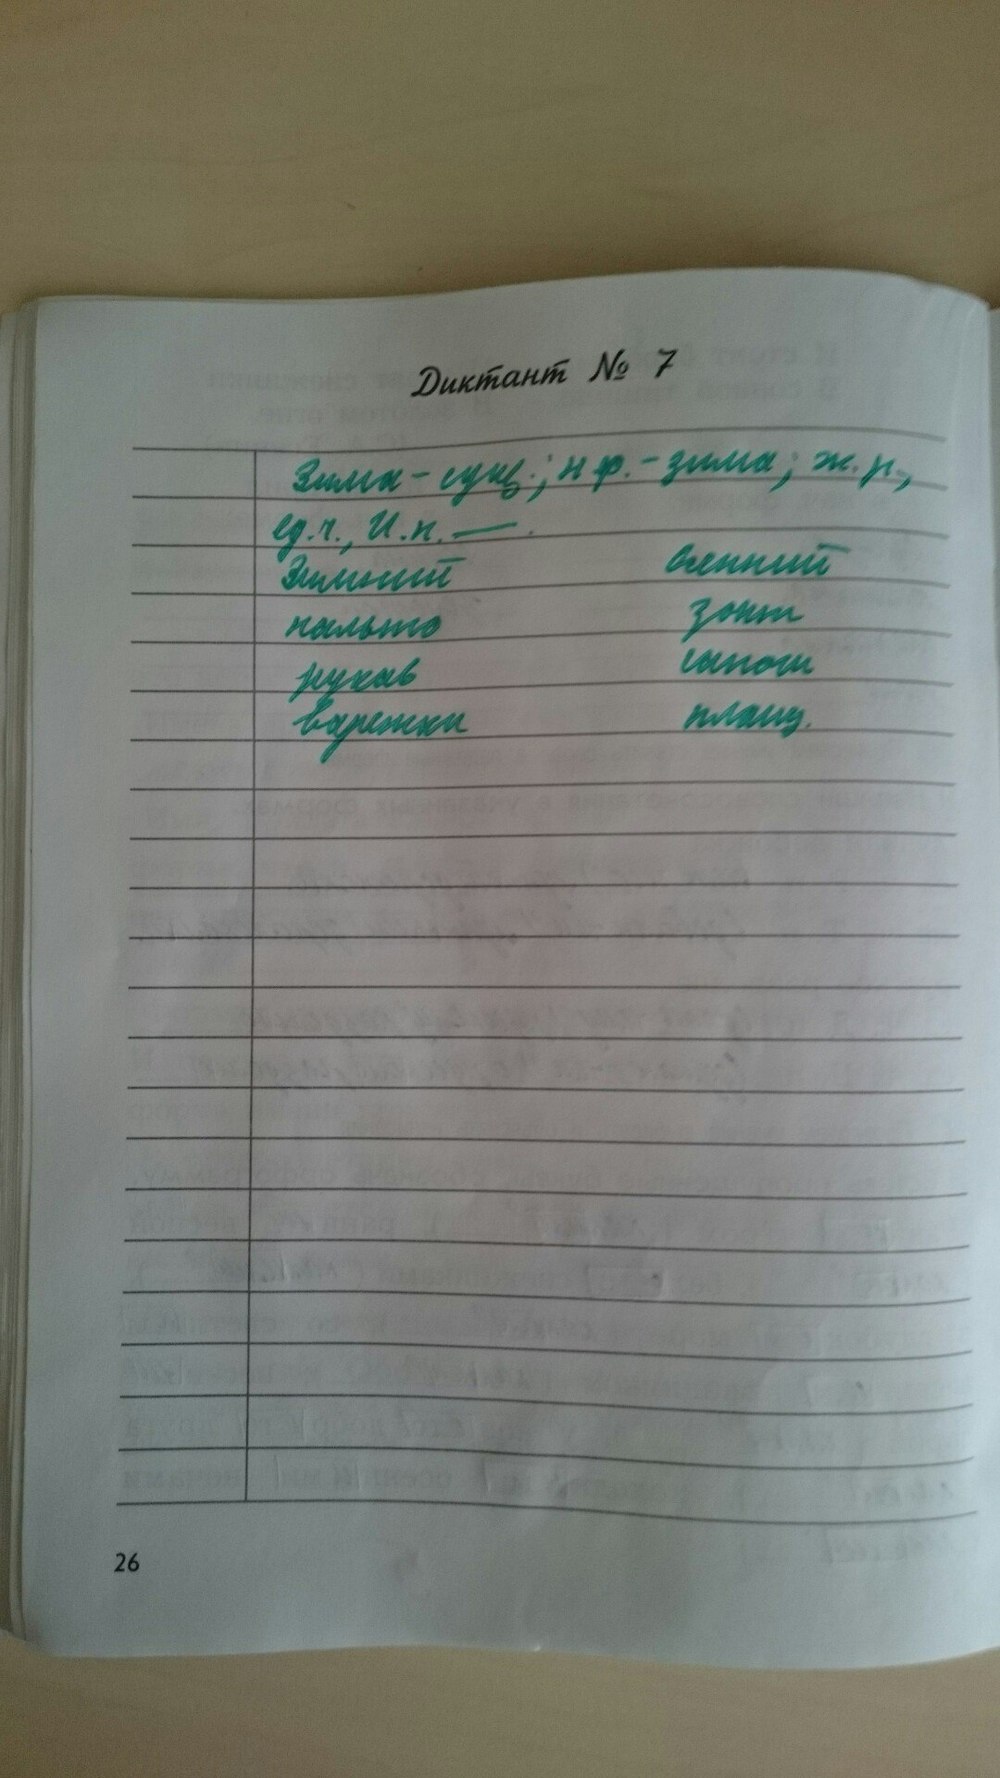 Диктант № 7
Зима – сущ.; н.ф. – зима; ж.р.,
ед.ч., И.п. — .
Зимний осенний
пальто зонт
рукав сапоги
варежки плащ.
26